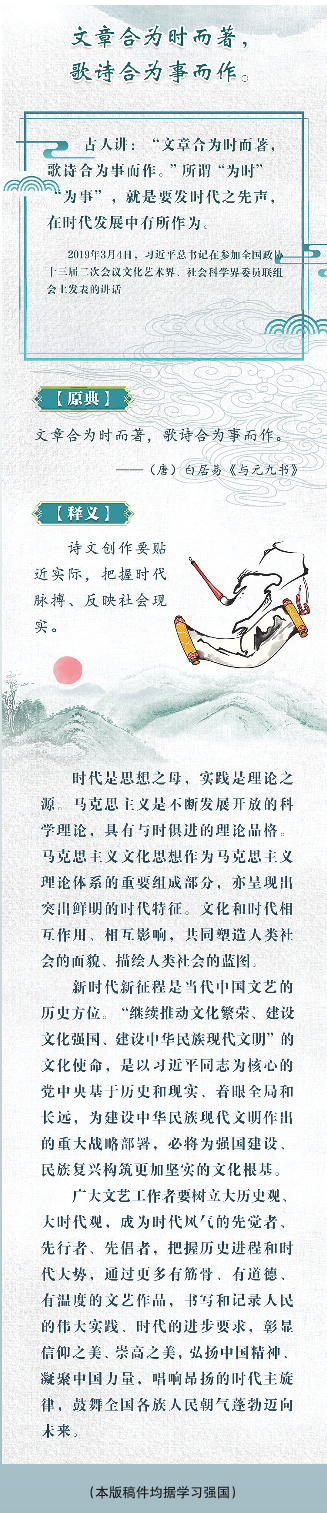 文章合为时而著，
歌诗合为事而作。
古人讲：“文章合为时而著，
歌诗合为事而作。”所谓“为时”
“为事”，就是要发时代之先声，
在时代发展中有所作为。
2019年3月4日，习近平总书记在参加全国政协
十三届二次会议文化艺术界、社会科学界委员联组
会上发表的讲话
【原典】
文章合为时而著，歌诗合为事而作。
——（唐）白居易《与元九书》
【释义】
诗文创作要贴
近实际，把握时代
脉搏、反映社会现
实。
时代是思想之母，实践是理论之
源。马克思主义是不断发展开放的科
学理论，具有与时俱进的理论品格。
马克思主义文化思想作为马克思主义
理论体系的重要组成部分，亦呈现出
突出鲜明的时代特征。文化和时代相
互作用、相互影响，共同塑造人类社
会的面貌、描绘人类社会的蓝图。
新时代新征程是当代中国文艺的
历史方位。“继续推动文化繁荣、建设
文化强国、建设中华民族现代文明”的
文化使命，是以习近平同志为核心的
党中央基于历史和现实、着眼全局和
长远，为建设中华民族现代文明作出
的重大战略部署，必将为强国建设、
民族复兴构筑更加坚实的文化根基。
广大文艺工作者要树立大历史观、
大时代观，成为时代风气的先觉者、
先行者、先倡者，把握历史进程和时
代大势，通过更多有筋骨、有道德、
有温度的文艺作品，书写和记录人民
的伟大实践、时代的进步要求，彰显
信仰之美、崇高之美，弘扬中国精神、
凝聚中国力量，唱响昂扬的时代主旋
律，鼓舞全国各族人民朝气蓬勃迈向
未来。
（本版稿件均据学习强国）